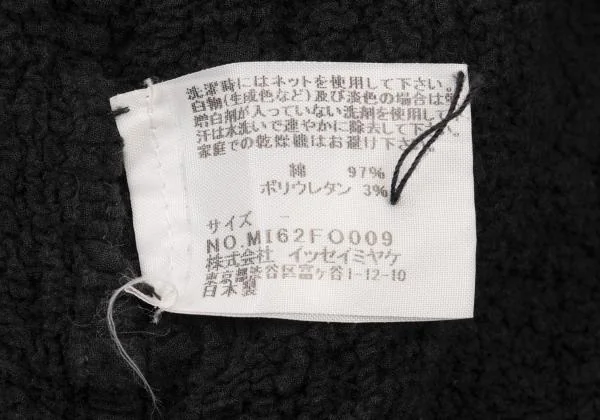 洗濯時にはネットを使用して下さい。
白物(生成色など)及び淡色の場合は
増白剤が入っていない洗剤を使用して
汗は水洗いで速やかに除去して下さい。
家庭での乾燥機はお避け下さい。
綿 97%
ポリウレタン 3%
サイズ －
NO.MI62FO009
株式会社 イッセイミヤケ
東京都渋谷区富ヶ谷1-12-10
日本製